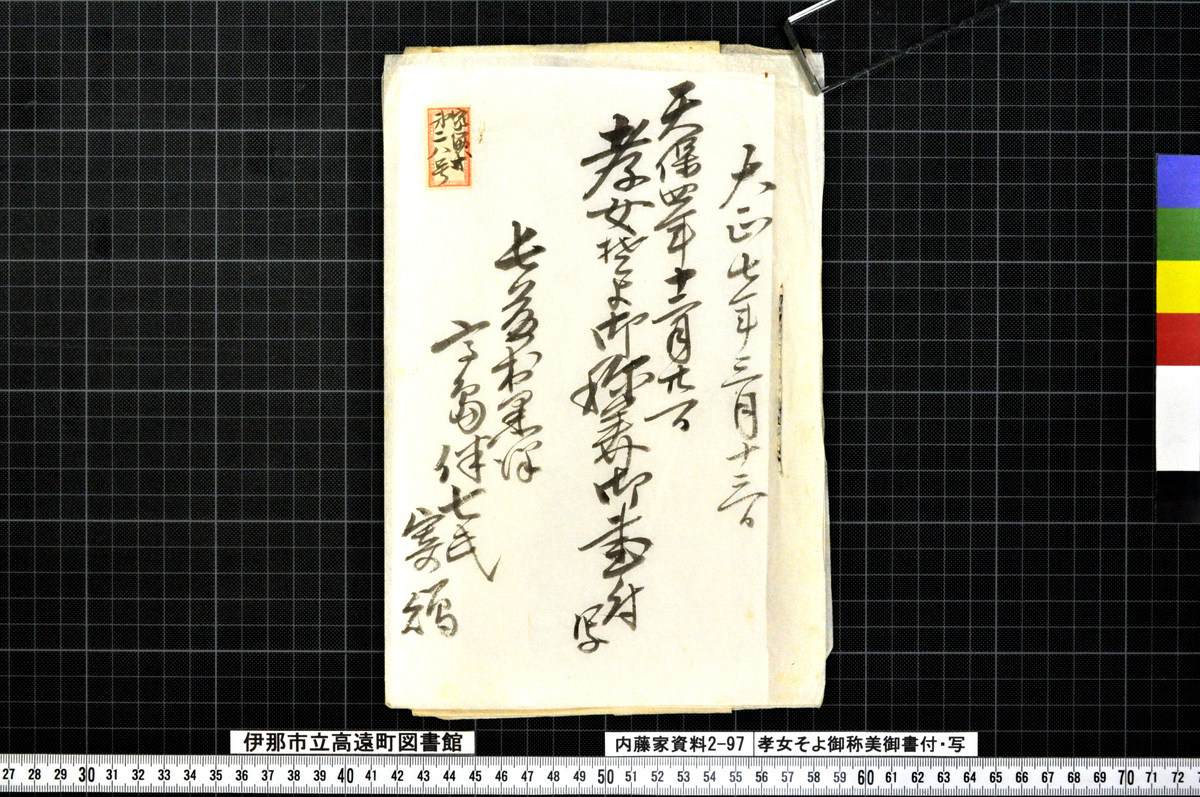 大正七年三月十三日
天保四年十二月廿一日
孝女そよ御称美御書付
写
長藤村黒沢
高嶌伴七氏
寄稿
第二八号
伊那市立高遠町図書館
内藤家資料2-97
孝女そよ御称美御書付・写
27 28 29 30 31 32 33 34 35 36 37 38 39 40 41 42 43 44 45 46 47 48 49 50 51 52 53 54 55 56 57 58 59 60 61 62 63 64 65 66 67 68 69 70 71 72